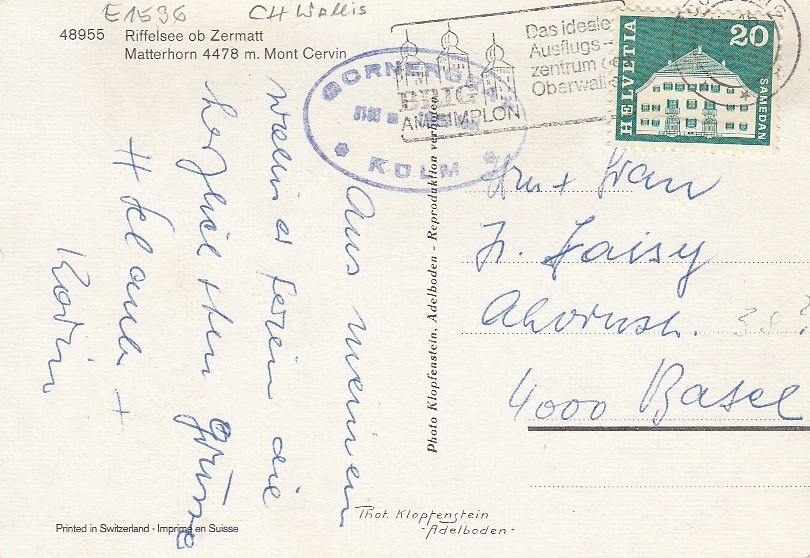 E1536 CH Wallis
48955 Riffelsee ob Zermatt
Matterhorn 4478 m. Mont Cervin
GORNERGRAT
KULM
BRIG
AM SIMPLON
Das ideale
Ausflugs-
zentrum
Oberwallis
HELVETIA
20
SAMEDAN
Aus meinen
walliser Ferien die
herzlichsten Grüsse
Hrn + Frau
Fr. Zaisy
Ahornstr. 38?
4000 Basel
Photo Klopfenstein, Adelboden - Reproduktion verboten
Phot. Klopfenstein
- Adelboden -
Printed in Switzerland - Imprimé en Suisse